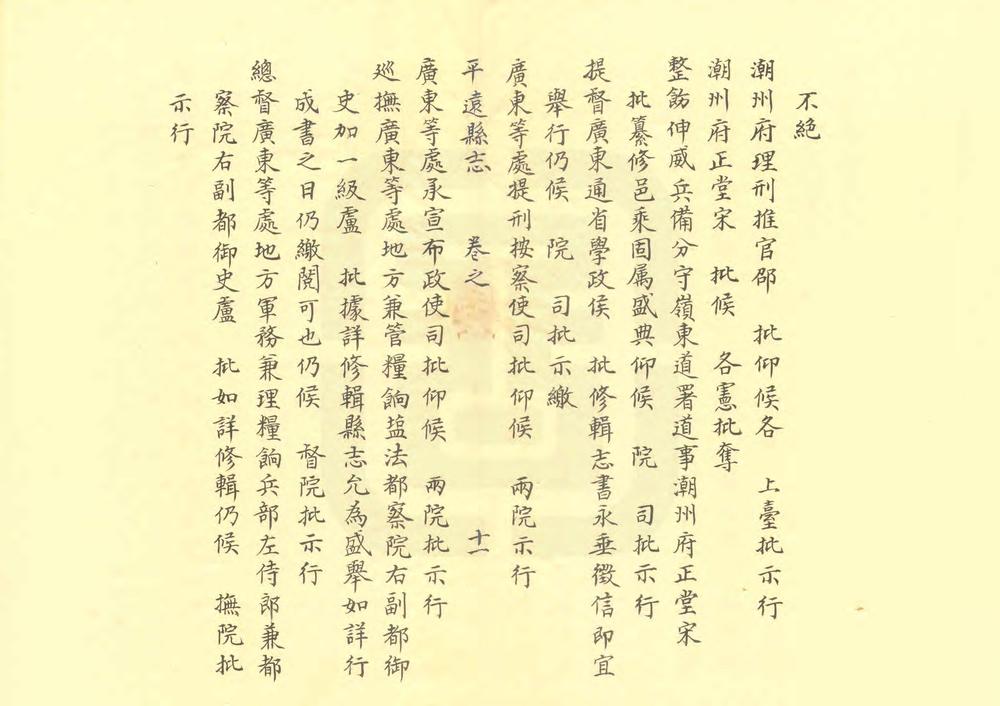 不絕
潮州府理刑推官郘 批仰候各 上臺批示行
潮州府正堂宋 批候 各憲批奪
整飭伸威兵備分守嶺東道署道事潮州府正堂宋
批纂修邑乘固属盛典仰候 院 司批示行
提督廣東通省學政侯 批修輯志書永垂徵信即宜
舉行仍候 院 司批示繳
廣東等處提刑按察使司批仰候 兩院示行
平遠縣志 卷之 十一
廣東等處承宣布政使司批仰候 兩院批示行
廵撫廣東等處地方兼管糧餉塩法都察院右副都御
史加一級盧 批據詳修輯縣志允為盛舉如詳行
成書之日仍繳閱可也仍候 督院批示行
總督廣東等處地方軍務兼理糧餉兵部左侍郎兼都
察院右副都御史盧 批如詳修輯仍候 撫院批
示行